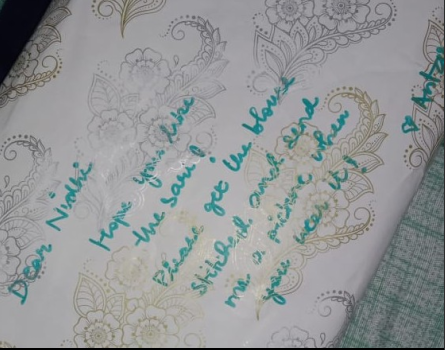 Dear Nidhi
Hope you like
the Saree!
Please get the blouse
stitched and send
me a picture when
you wear it!